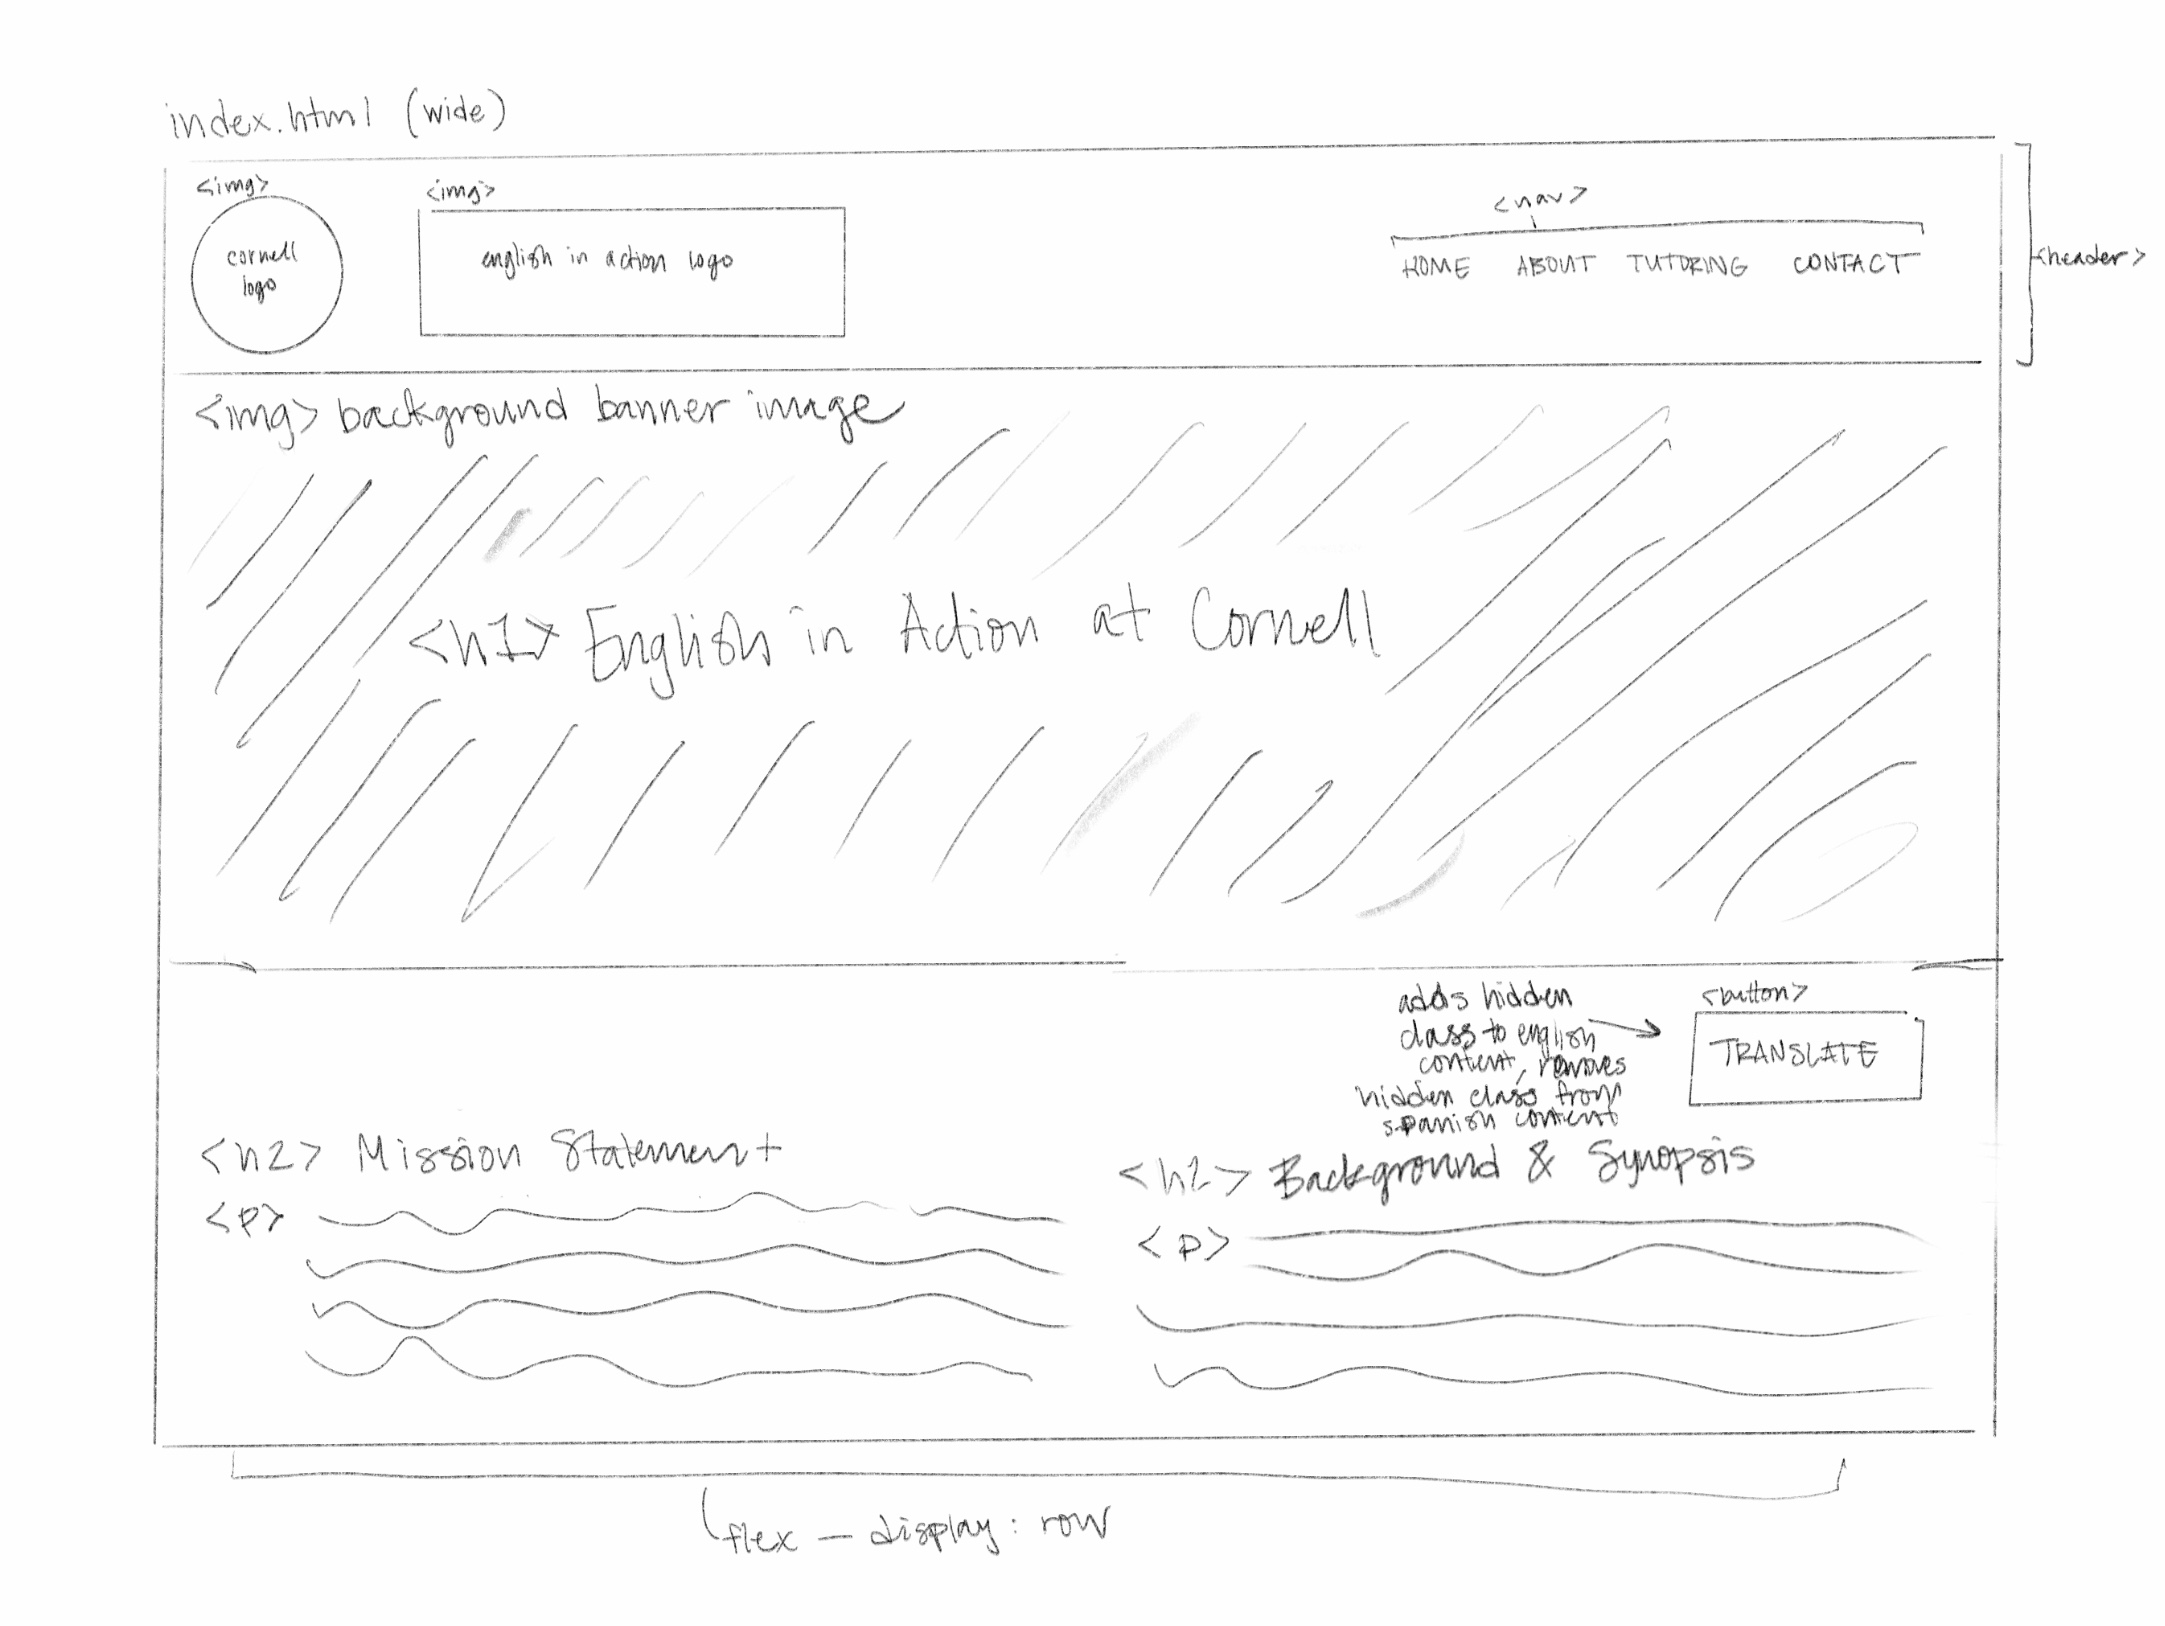 index.html (wide)
<img>
cornell
logo
<img>
english in action logo
<nav>
HOME ABOUT TUTORING CONTACT
<header>
<img> background banner image
<h1> English in Action at Cornell
adds hidden
class to english
content, removes
hidden class from
spanish content
<button>
TRANSLATE
<h2> Mission Statement
<p>
<h2> Background & Synopsis
<p>
flex - display: row